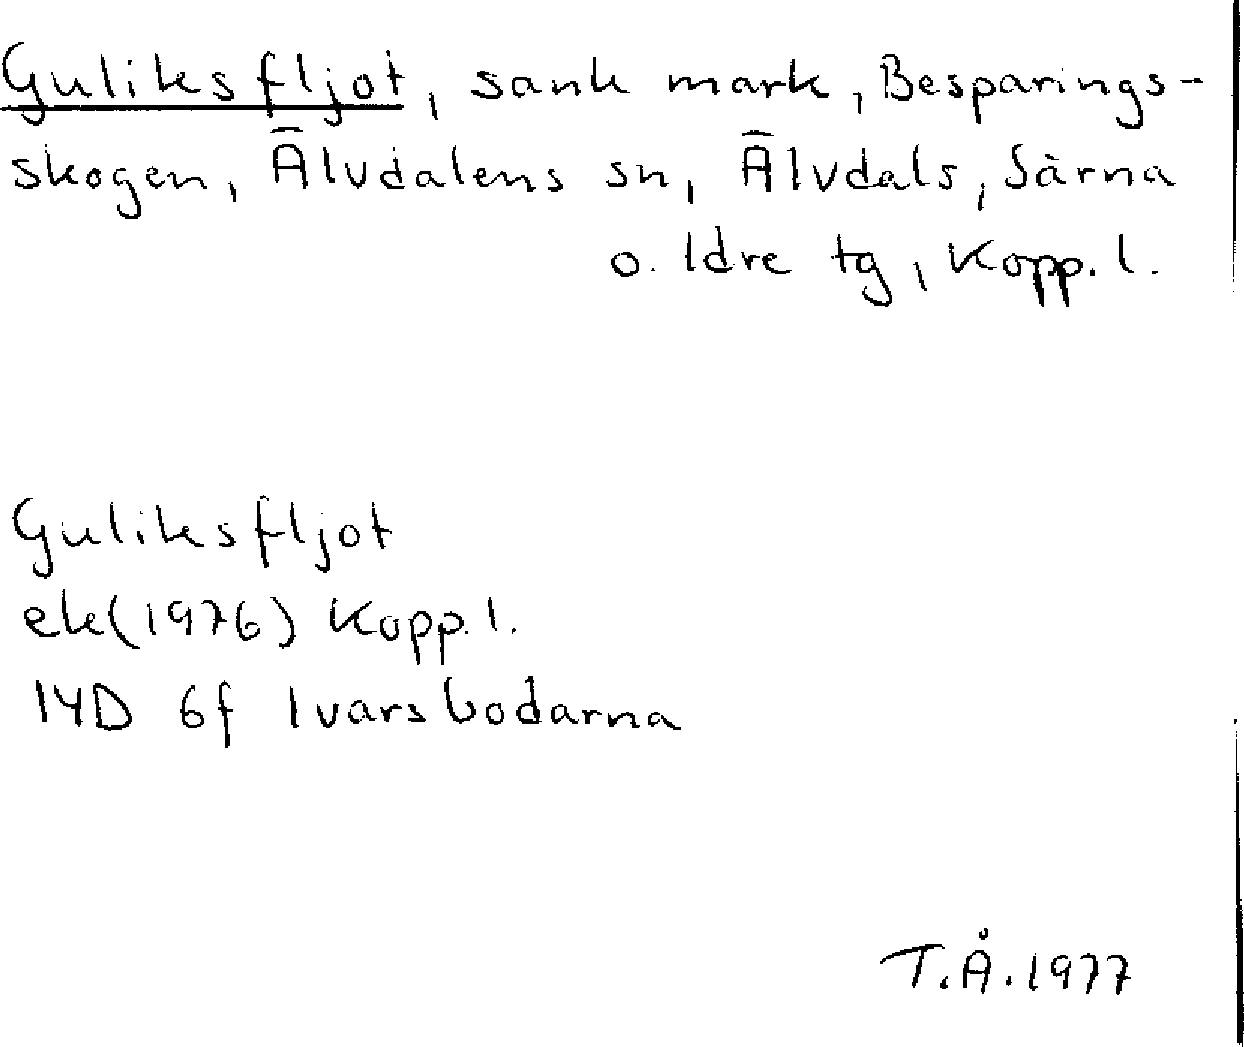 Guliksfljot, sank mark, Besparings-
skogen, Älvdalens sn, Älvdals, Särna
o. Idre tg, Kopp. l.
Guliksfljot
ek(1976) Kopp. l.
14D 6f Ivarsbodarna
T.Å.1977